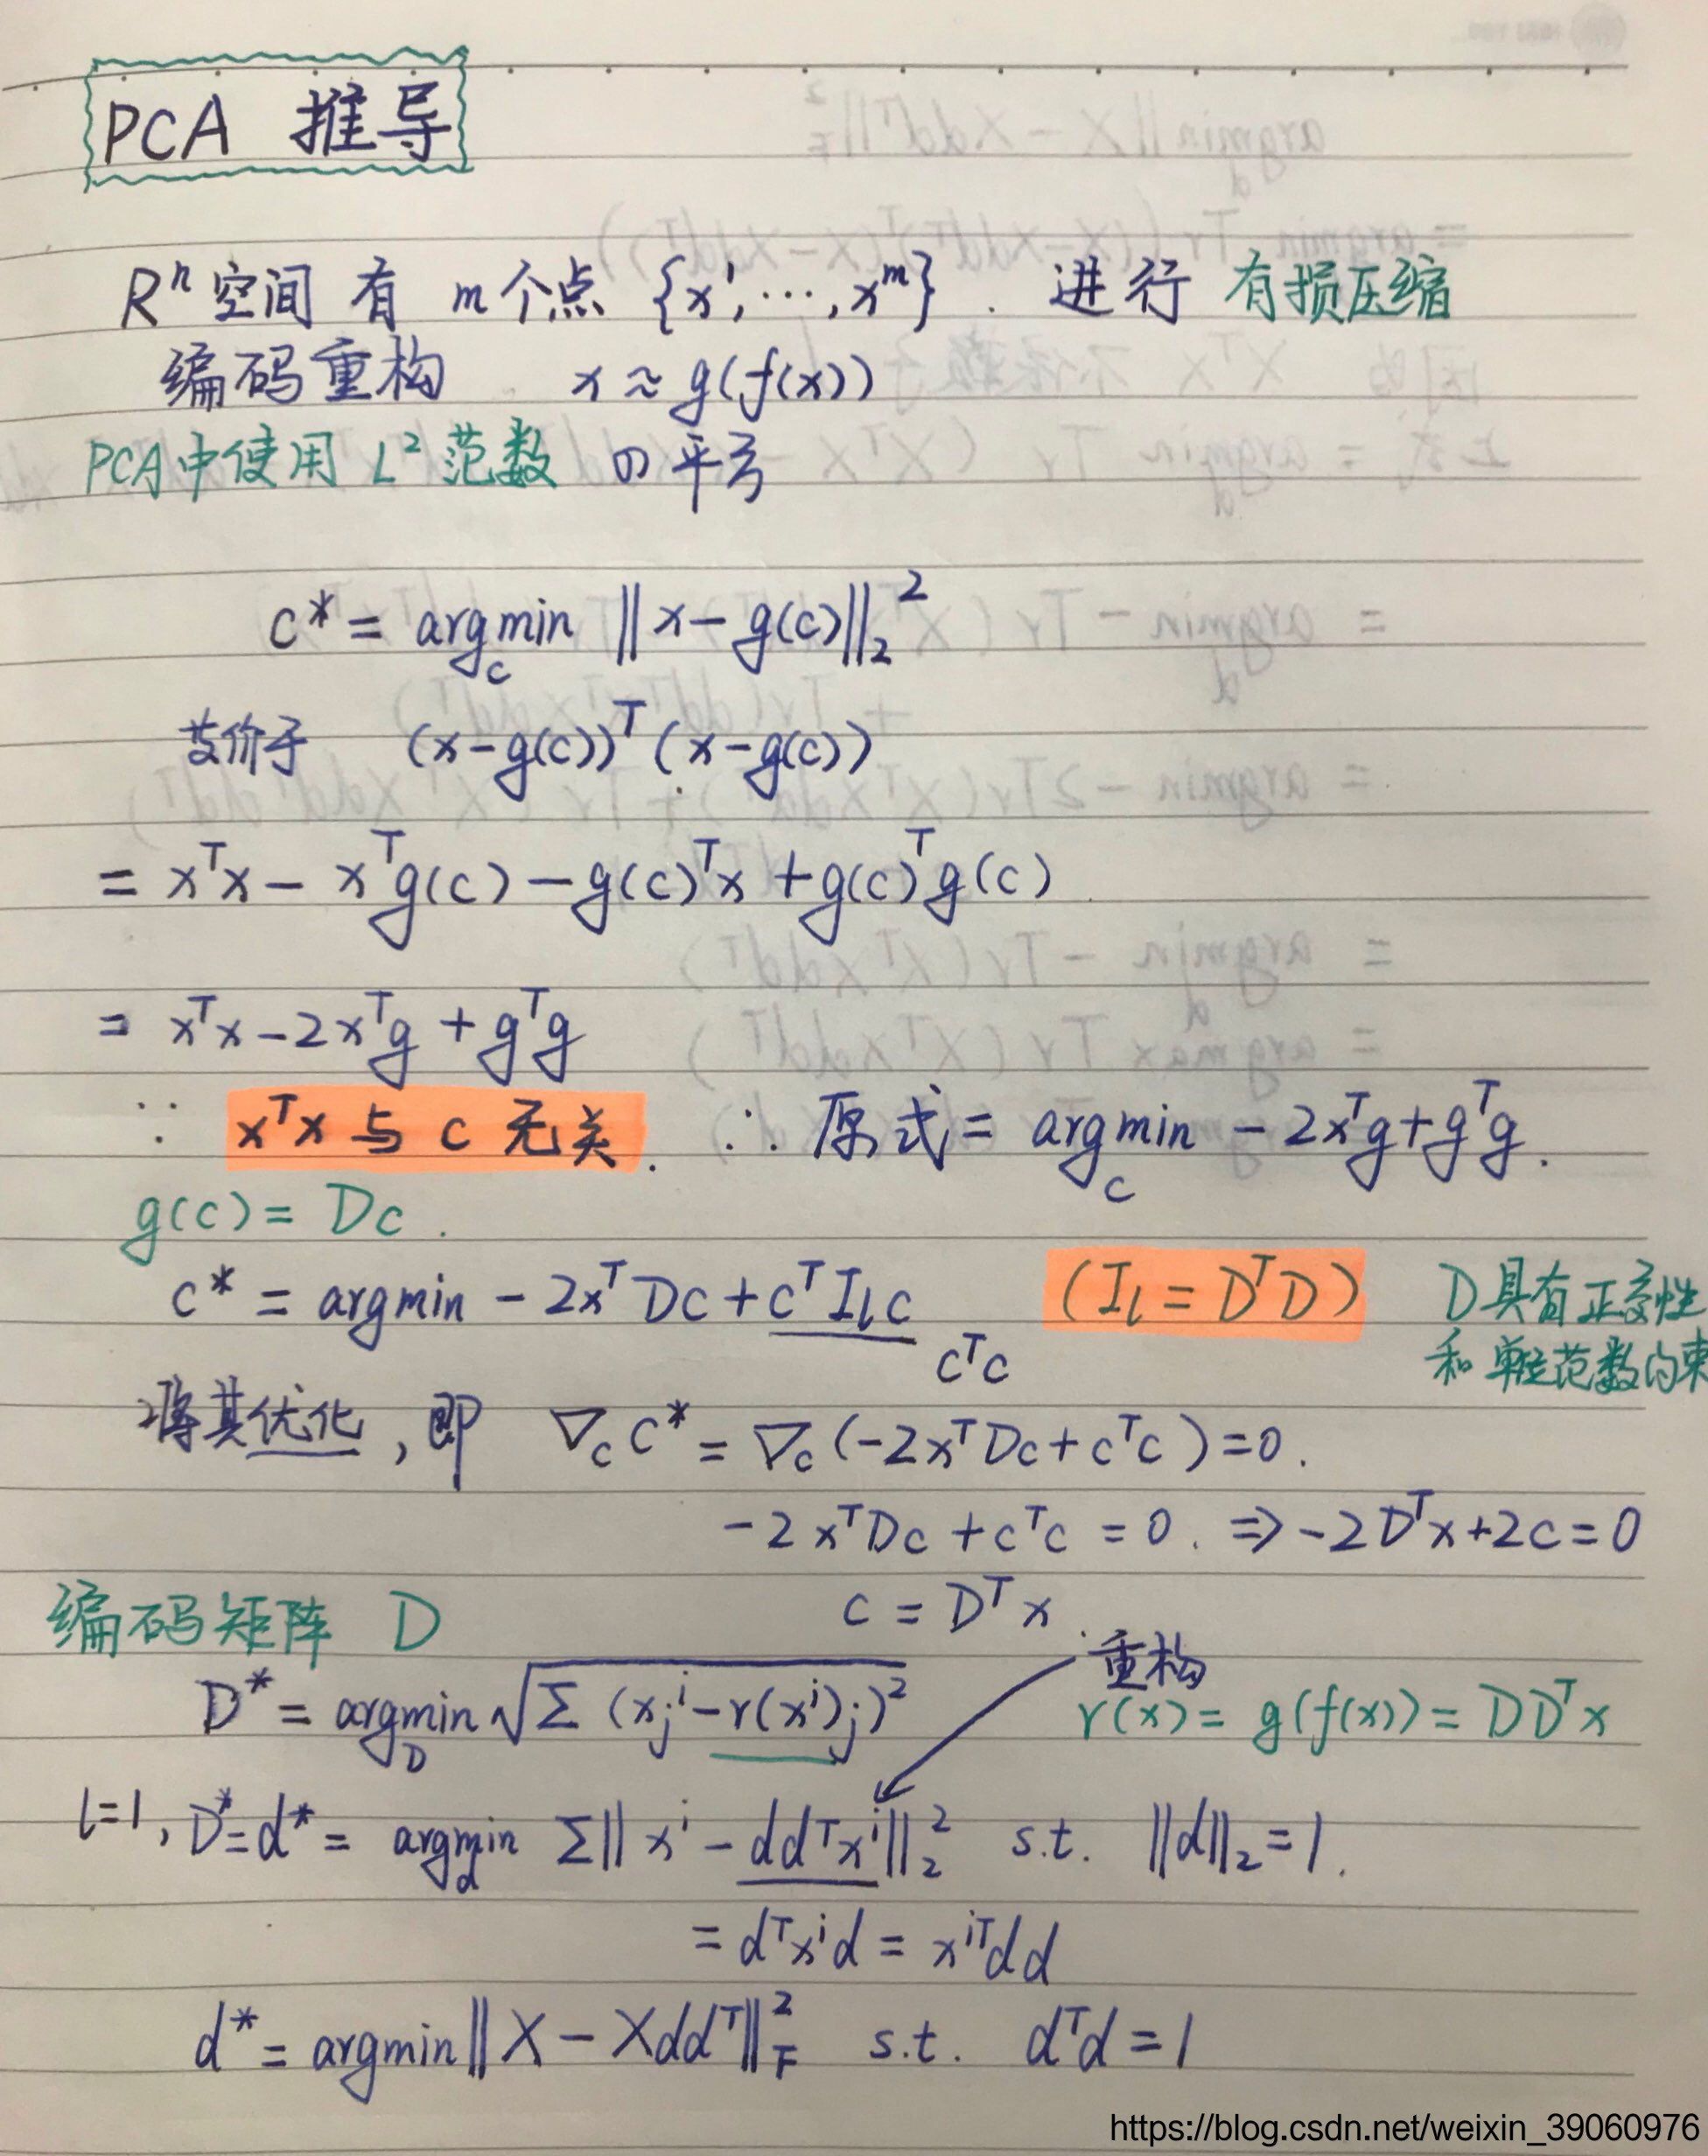 PCA 推导
Rⁿ空间 有 m个点 {x¹, ⋯, xᵐ}. 进行 有损压缩
编码重构 x ≈ g(f(x))
PCA中使用 L² 范数 の 平方
c* = argmin_c ‖x − g(c)‖₂²
等价于 (x−g(c))ᵀ(x−g(c))
= xᵀx − xᵀg(c) − g(c)ᵀx + g(c)ᵀg(c)
= xᵀx − 2xᵀg + gᵀg
∵ xᵀx 与 c 无关. ∴ 原式 = argmin_c − 2xᵀg + gᵀg.
g(c) = Dc.
c* = argmin − 2xᵀDc + cᵀI_l c (I_l = DᵀD) D具有正交性
cᵀc 和单位范数约束
将其优化, 即 ∇_c c* = ∇_c(−2xᵀDc + cᵀc) = 0.
−2xᵀDc + cᵀc = 0. ⇒ −2Dᵀx + 2c = 0
编码矩阵 D c = Dᵀx.
重构
D* = argmin_D √Σ(x_jⁱ − r(xⁱ)_j)² r(x) = g(f(x)) = DDᵀx
l=1, D* = d* = argmin_d Σ‖xⁱ − ddᵀxⁱ‖₂² s.t. ‖d‖₂ = 1.
= dᵀxⁱd = xⁱᵀdd
d* = argmin‖X − Xddᵀ‖_F² s.t. dᵀd = 1
https://blog.csdn.net/weixin_39060976